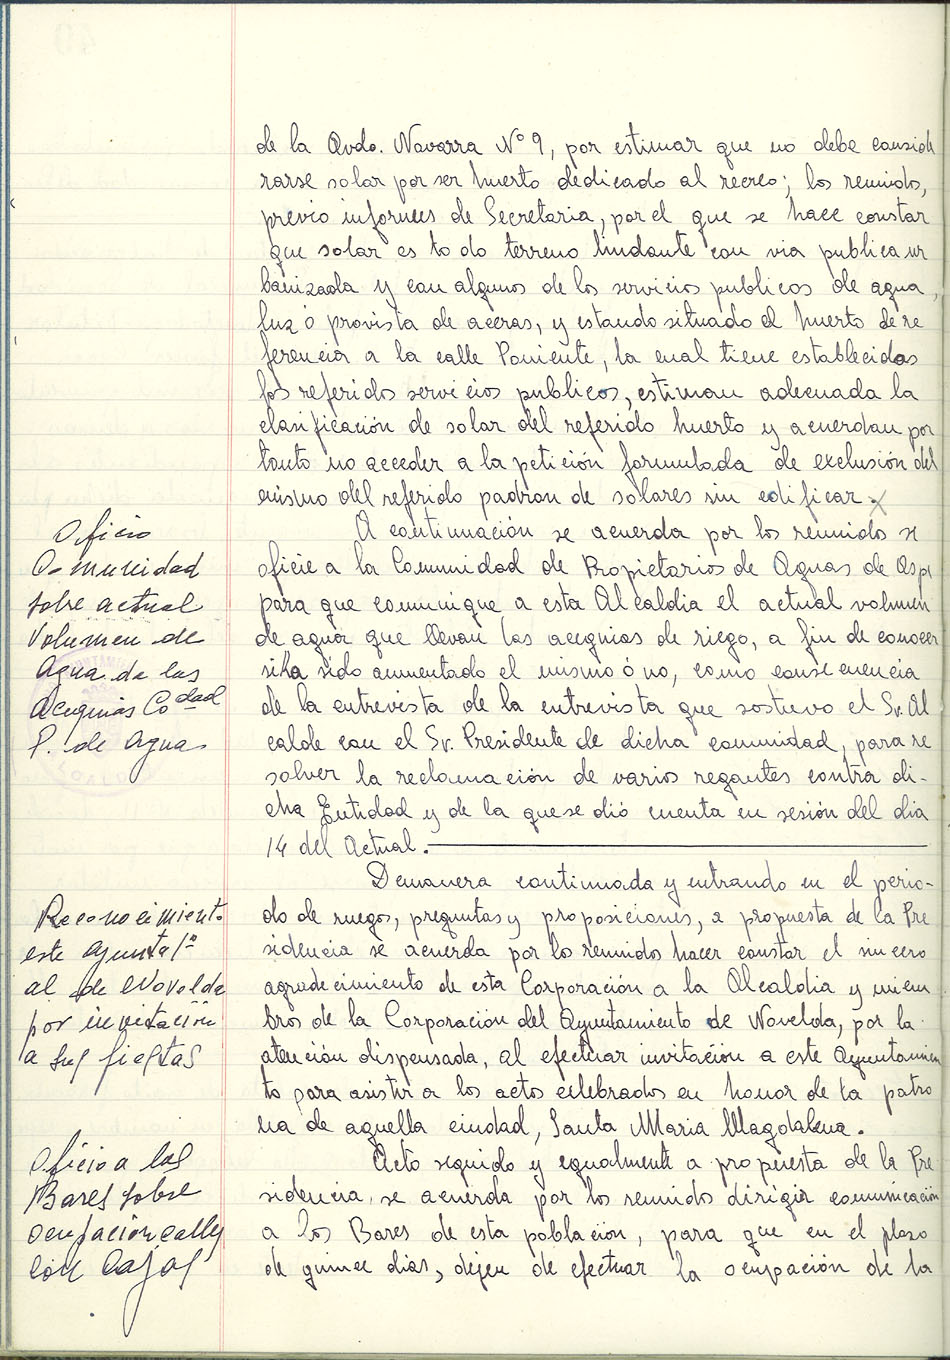 de la Avda. Navarra Nº 9, por estimar que no debe conside
rarse solar por ser huerto dedicado al recreo; los reunidos,
previo informes de Secretaria, por el que se hace constar
que solar es todo terreno lindante con via publica ur
banizada y con algunos de los servicios publicos de agua,
luz ó provista de aceras, y estando situado el huerto de re
ferencia a la calle Poniente, la cual tiene establecidos
los referidos servicios publicos, estiman adecuada la
clasificación de solar del referido huerto y acuerdan por
tanto no acceder a la petición formulada de exclusión del
mismo del referido padron de solares sin edificar.
Oficio
Comunidad
sobre actual
Volumen de
Agua de las
Acequias Co dad
P. de Aguas
A continuación se acuerda por los reunidos se
oficie a la Comunidad de Propietarios de Aguas de Aspe
para que comunique a esta Alcaldia el actual volumen
de agua que llevan las acequias de riego, a fin de conocer
si ha sido aumentado el mismo ó no, como consecuencia
de la entrevista de la entrevista que sostuvo el Sr. Al
calde con el Sr. Presidente de dicha comunidad, para re
solver la reclamación de varios regantes contra di-
cha Entidad y de la que se dió cuenta en sesión del dia
14 del Actual.
Reconocimiento
este Ayunta1º
al de Novelda
por invitación
a sus fiestas
De manera continuada y entrando en el perio-
do de ruegos, preguntas y proposiciones, a propuesta de la Pre
sidencia se acuerda por los reunidos hacer constar el sincero
agradecimiento de esta Corporación a la Alcaldia y miem
bros de la Corporación del Ayuntamiento de Novelda, por la
atención dispensada, al efectuar invitación a este Ayuntamien
to para asistir a los actos celebrados en honor de la patro
na de aquella ciudad, Santa Maria Magdalena.
Oficio a los
Bares sobre
ocupación calle
con cajas
Acto seguido y egualmente a propuesta de la Pre
sidencia, se acuerda por los reunidos dirigir comunicación
a los Bares de esta población, para que en el plazo
de quince dias, dejen de efectuar la ocupación de la